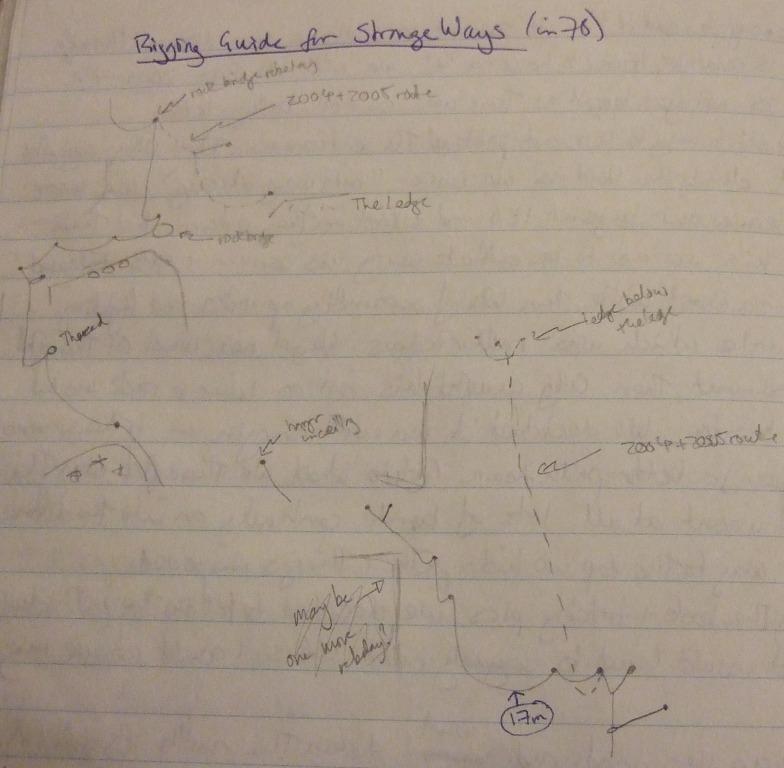 Rigging Guide for Strange Ways (in 76)
rock bridge rebelay
2004+2005 route
The ledge
rock bridge
Thread
ledge below
the ledge
hanger
in ceiling
2004+2005 route
maybe
one more
rebelay?
17m